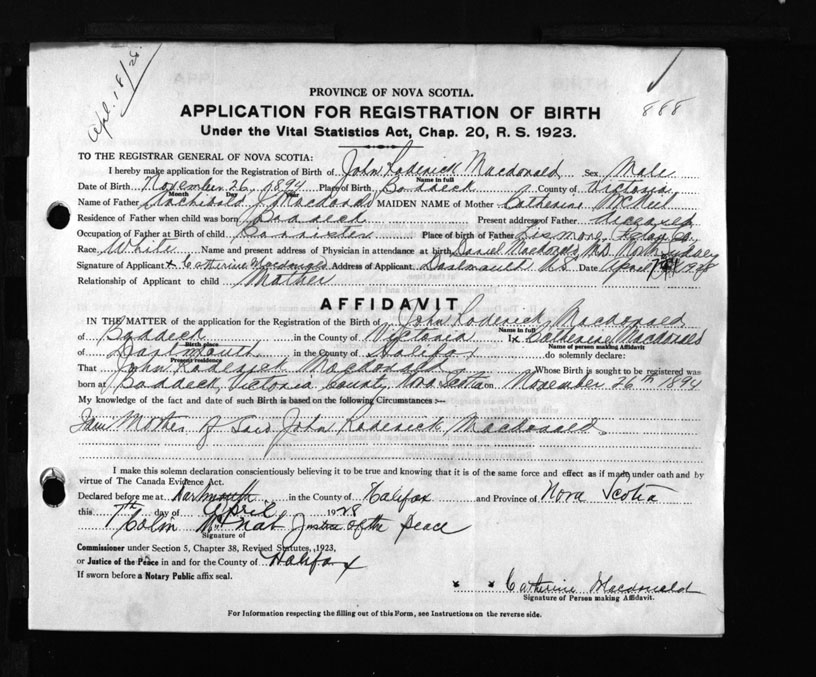 Apl. 18/28.
888
PROVINCE OF NOVA SCOTIA.
APPLICATION FOR REGISTRATION OF BIRTH
Under the Vital Statistics Act, Chap. 20, R. S. 1923.
TO THE REGISTRAR GENERAL OF NOVA SCOTIA:
I hereby make application for the Registration of Birth of John Roderick Macdonald Sex Male
Name in full
Date of Birth November 26, 1894 Place of Birth Baddeck County of Victoria
Month Day Year
Name of Father Archibald J. Macdonald MAIDEN NAME of Mother Catherine McNeil
Residence of Father when child was born Baddeck Present address of Father deceased
Occupation of Father at Birth Barrister Place of birth of Father Lismore, Pictou Co.
Race White Name and present address of Physician in attendance at birth Daniel Macdonald, M.D. North Sydney
Signature of Applicant x Catherine Macdonald Address of Applicant Dartmouth N.S. Date April 7th 1928
Relationship of Applicant to child Mother
AFFIDAVIT
IN THE MATTER of the application for the Registration of the Birth of John Roderick Macdonald
Name in full
of Baddeck in the County of Victoria I x Catherine Macdonald
Birth place Name of person making Affidavit
of Dartmouth in the County of Halifax do solemnly declare:
Present residence
That John Roderick Macdonald Whose Birth is sought to be registered was
born at Baddeck, Victoria County, Nova Scotia on November 26th 1894
My knowledge of the fact and date of such Birth is based on the following Circumstances:—
I am Mother of said John Roderick Macdonald.
I make this solemn declaration conscientiously believing it to be true and knowing that it is of the same force and effect as if made under oath and by
virtue of The Canada Evidence Act.
Declared before me at Dartmouth in the County of Halifax and Province of Nova Scotia
this 7th day of April 1928
Colin McNab Justice of the Peace
Signature of
Commissioner under Section 5, Chapter 38, Revised Statutes, 1923,
or Justice of the Peace in and for the County of Halifax
If sworn before a Notary Public affix seal.
x x Catherine Macdonald
Signature of Person making Affidavit.
For Information respecting the filling out of this Form, see Instructions on the reverse side.